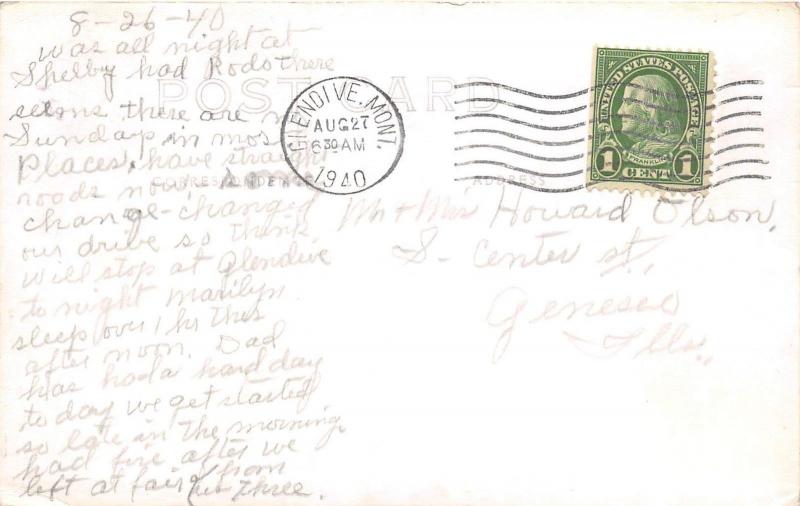 8-26-40
was all night at
Shelby had Rodo there
seems there are
Sundays in
Places, have straight
roads now
change-changed
our drive so think
will stop at Glendive
to night Marilyn
sleep over 1 hr this
after noon. Dad
has had a hard day
to day we get started
so late in the morning
had fire after we
left at fair from
Three.
POST CARD
CORRESPONDENCE
ADDRESS
GLENDIVE, MONT.
AUG 27
6 30 AM
1940
UNITED STATES POSTAGE
FRANKLIN
1 CENT 1
Mr & Mrs Howard Olson,
S- Center st,
Geneseo
Ills.,
HipPostcard.com